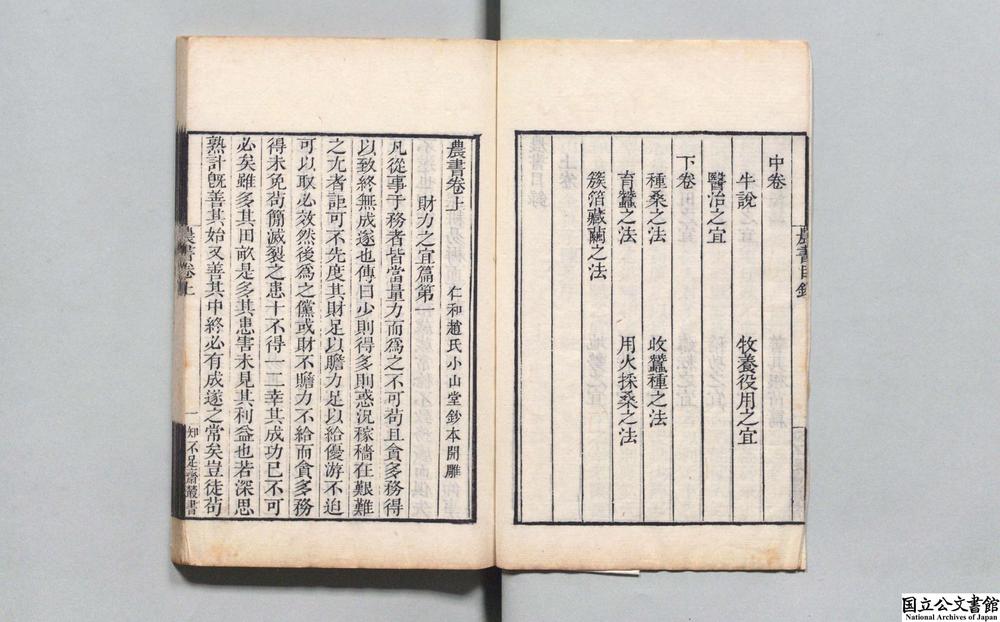 中卷
牛說 牧養役用之宜
醫治之宜
下卷
種桑之法 收蠶種之法
育蠶之法 用火採桑之法
簇箔藏繭之法
農書目錄
農書卷上
仁和趙氏小山堂鈔本開雕
財力之宜篇第一
凡從事于務者皆當量力而為之不可苟且貪多務得
以致終無成遂也傳曰少則得多則惑況稼穡在艱難
之尤者詎可不先度其財足以贍力足以給優游不迫
可以取必效然後為之儻或財不贍力不給而貪多務
得未免苟簡滅裂之患十不得一二幸其成功已不可
必矣雖多其田畝是多其患害未見其利益也若深思
熟計旣善其始又善其中終必有成遂之常矣豈徒苟
農書卷上 一 知不足齋叢書
国立公文書館
National Archives of Japan